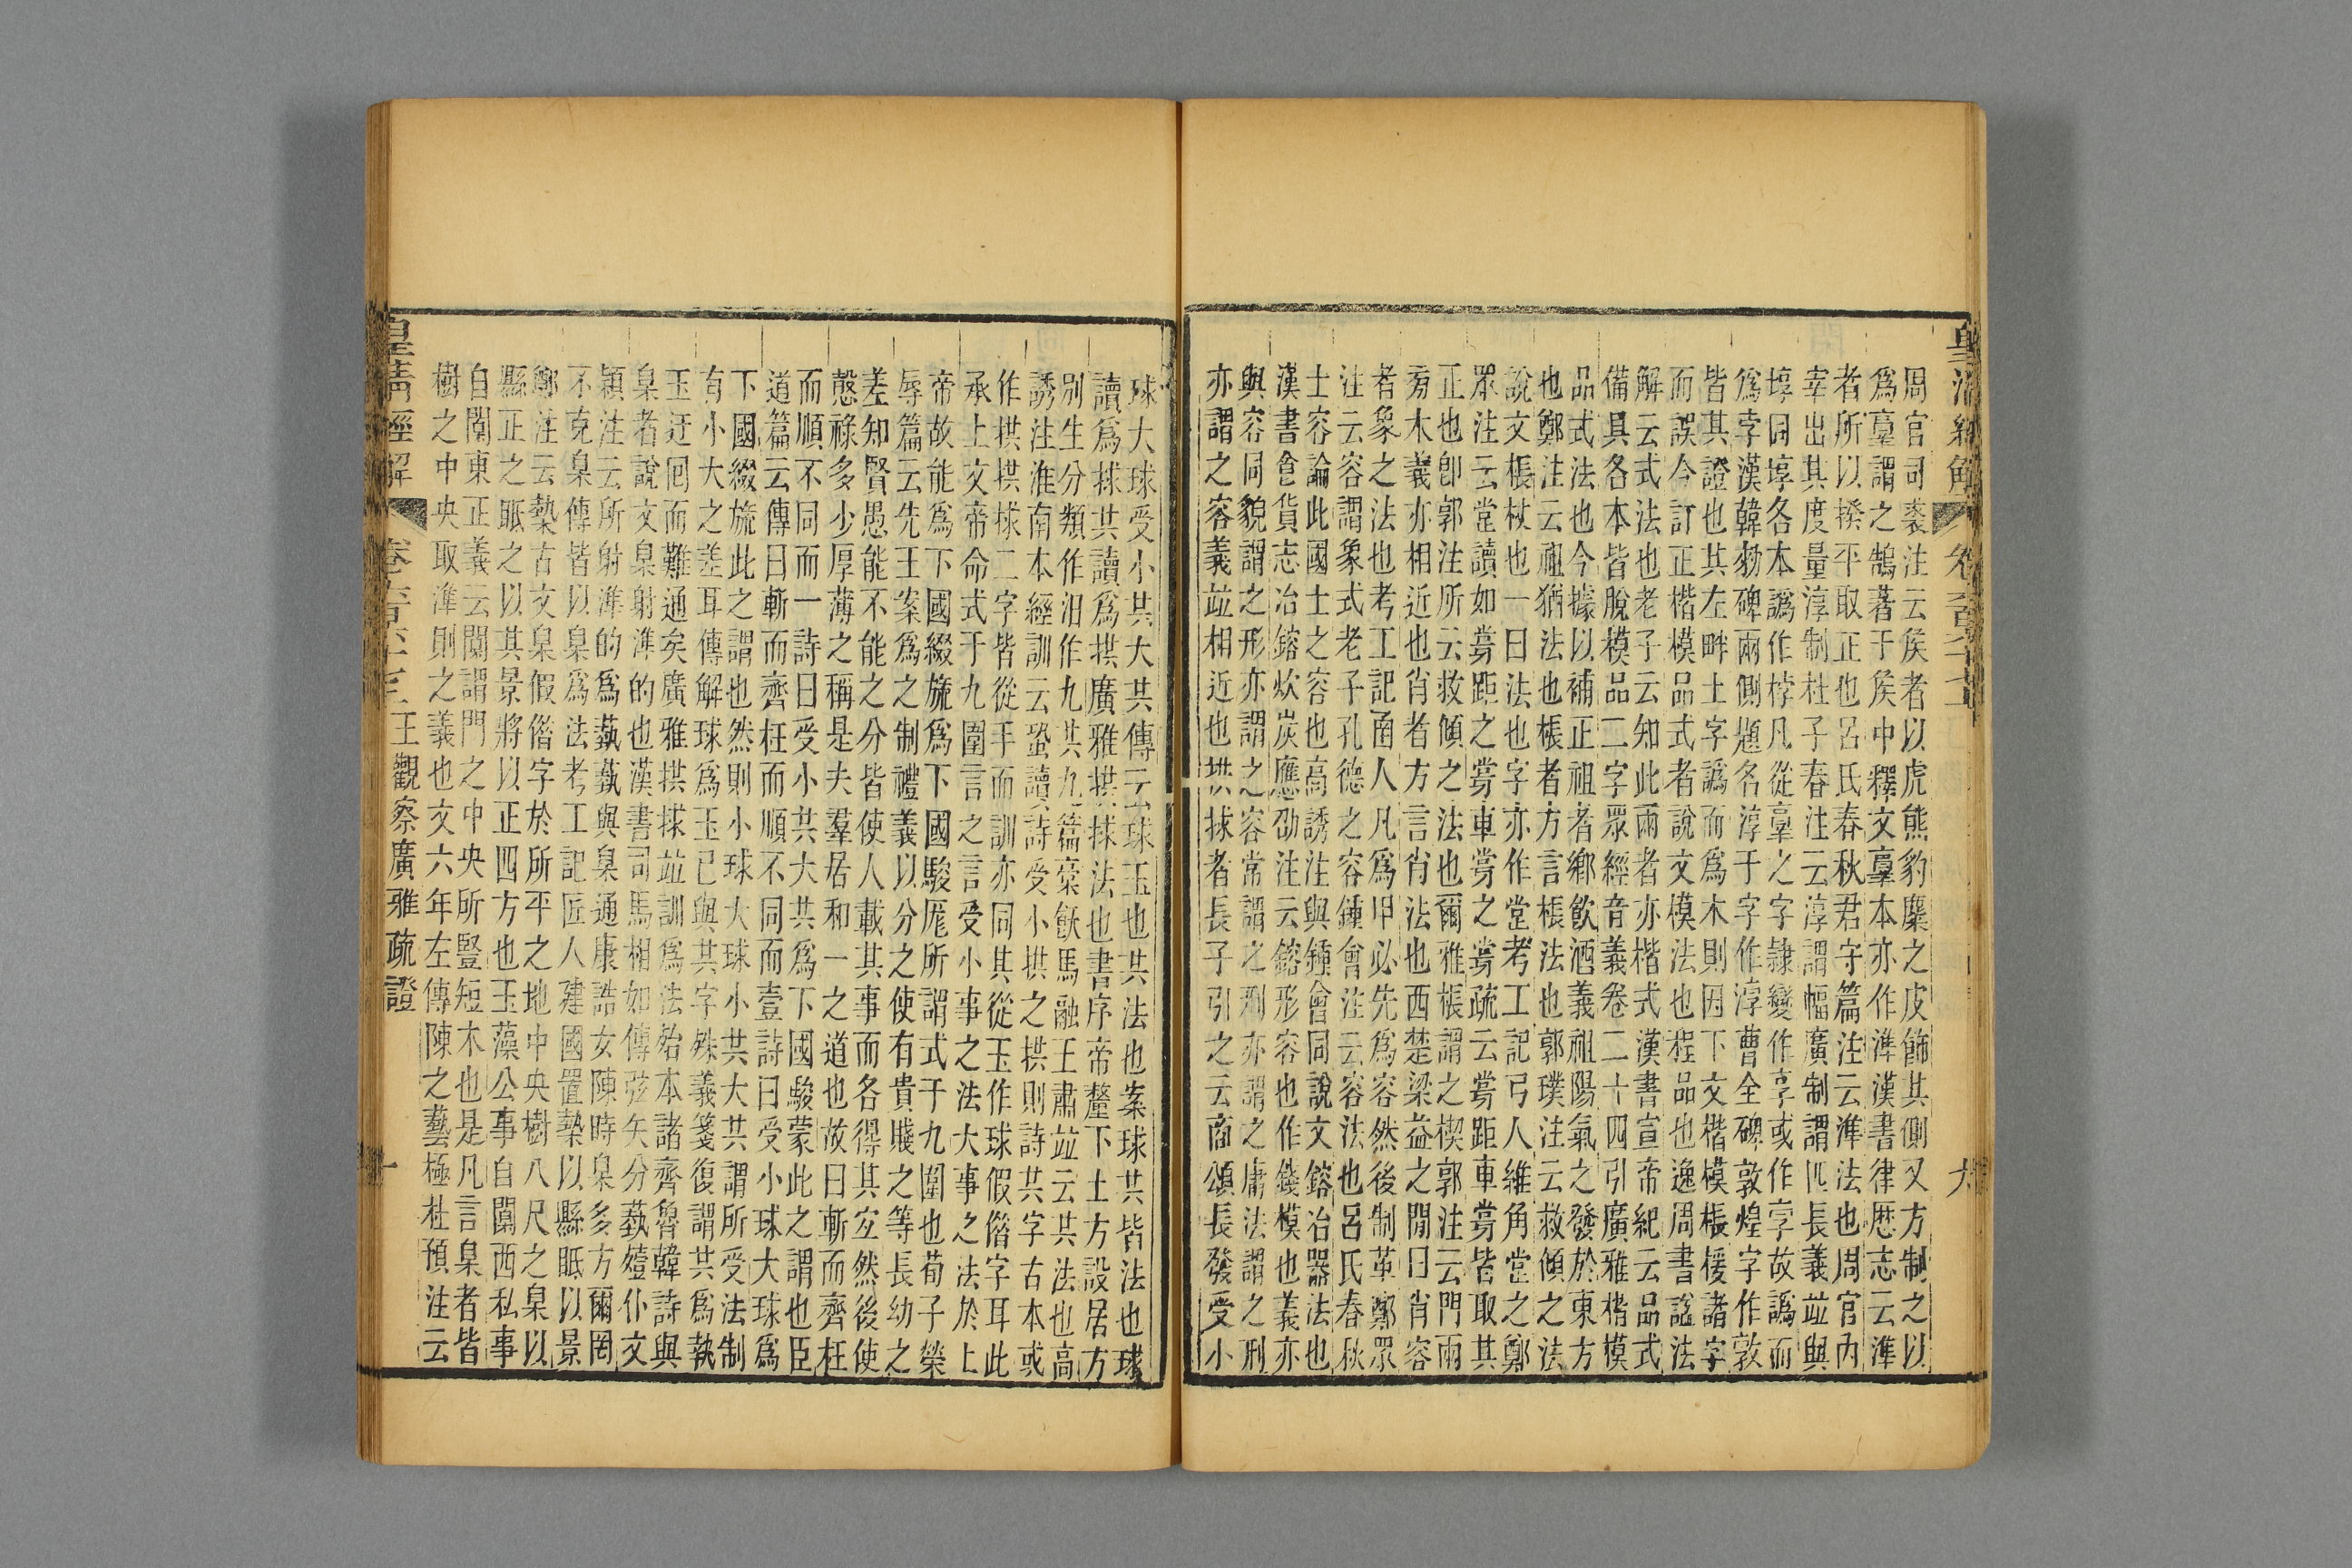 周官司裘注云矦者以虎熊豹麋之皮飾其側又方制之以
爲𦎫謂之鵠著于矦中釋文𦎫本亦作準漢書律厯志云準
者所以揆平取正也呂氏春秋君守篇注云準法也周官內
宰出其度量淳制杜子春注云淳謂幅廣制謂匹長義竝與
埻同埻各本譌作桲凡從𦎫之字隸變作享或作孛故譌而
爲孛漢韓勑碑兩側題名淳于字作渟曹全碑敦煌字作敦
皆其證也其左畔土字譌而爲木則因下文楷模棖楥諸字
而誤今訂正楷模品式者說文模法也程品也逸周書諡法
解云式法也老子云知此兩者亦楷式漢書宣帝紀云品式
備具各本皆脫模品二字眾經音義卷二十四引廣雅楷模
品式法也今據以補正祖者鄉飲酒義祖陽氣之發於東方
也鄭注云祖猶法也棖者方言棖法也郭璞注云救傾之法
說文棖杖也一曰法也字亦作堂考工記弓人維角堂之鄭
眾注云堂讀如牚距之牚車牚之牚疏云牚距車牚皆取其
正也卽郭注所云救傾之法也爾雅棖謂之楔郭注云門兩
旁木義亦相近也肖者方言肖法也西楚梁益之閒曰肖容
者象之法也考工記函人凡爲甲必先爲容然後制革鄭眾
注云容謂象式老子孔德之容鍾會注云容法也呂氏春秋
士容論此國士之容也高誘注與鍾會同說文鎔冶器法也
漢書食貨志冶鎔炊炭應劭注云鎔形容也作錢模也義亦
與容同貌謂之形亦謂之容常謂之刑亦謂之庸法謂之刑
亦謂之容義竝相近也拱捄者長子引之云商頌長發受小
球大球受小共大共傳云球玉也共法也案球共皆法也球
讀爲捄共讀爲拱廣雅拱捄法也書序帝釐下土方設居方
別生分類作汩作九共九篇槀飫馬融王肅竝云共法也高
誘注淮南本經訓云蛩讀詩受小拱之拱則詩共字古本或
作拱拱捄二字皆從手而訓亦同其從玉作球假偕字耳此
承上文帝命式于九圍言之言受小事之法大事之法於上
帝故能爲下國綴旒爲下國駿厖所謂式于九圍也荀子榮
辱篇云先王案爲之制禮義以分之使有貴賤之等長幼之
差知賢愚能不能之分皆使人載其事而各得其宜然後使
愨祿多少厚薄之稱是夫羣居和一之道也故曰斬而齊枉
而順不同而一詩曰受小共大共爲下國駿蒙此之謂也臣
道篇云傳曰斬而齊枉而順不同而壹詩曰受小球大球爲
下國綴旒此之謂也然則小球大球小共大共謂所受法制
有小大之差耳傳解球爲玉已與共字殊義箋復謂共爲執
玉迂回而難通矣廣雅拱捄竝訓爲法殆本諸齊魯韓詩與
臬者說文臬射準的也漢書司馬相如傳弦矢分蓺殪仆文
穎注云所射準的爲蓺蓺與臬通康誥女陳時臬多方爾罔
不克臬傳皆以臬爲法考工記匠人建國置槷以縣眡以景
鄭注云槷古文臬假偕字於所平之地中央樹八尺之臬以
縣正之眡之以其景將以正四方也玉藻公事自闑西私事
自闑東正義云闑謂門之中央所豎短木也是凡言臬者皆
樹之中央取準則之義也文六年左傳陳之藝極杜預注云
皇清經解
王觀察廣雅疏證